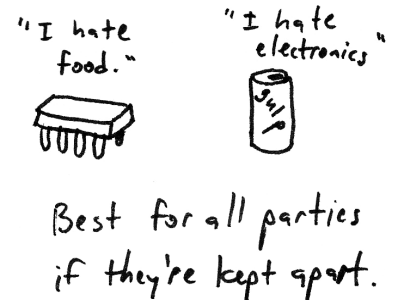 "I hate
food."
"I hate
electronics"
gulp
Best for all parties
if they're kept apart.